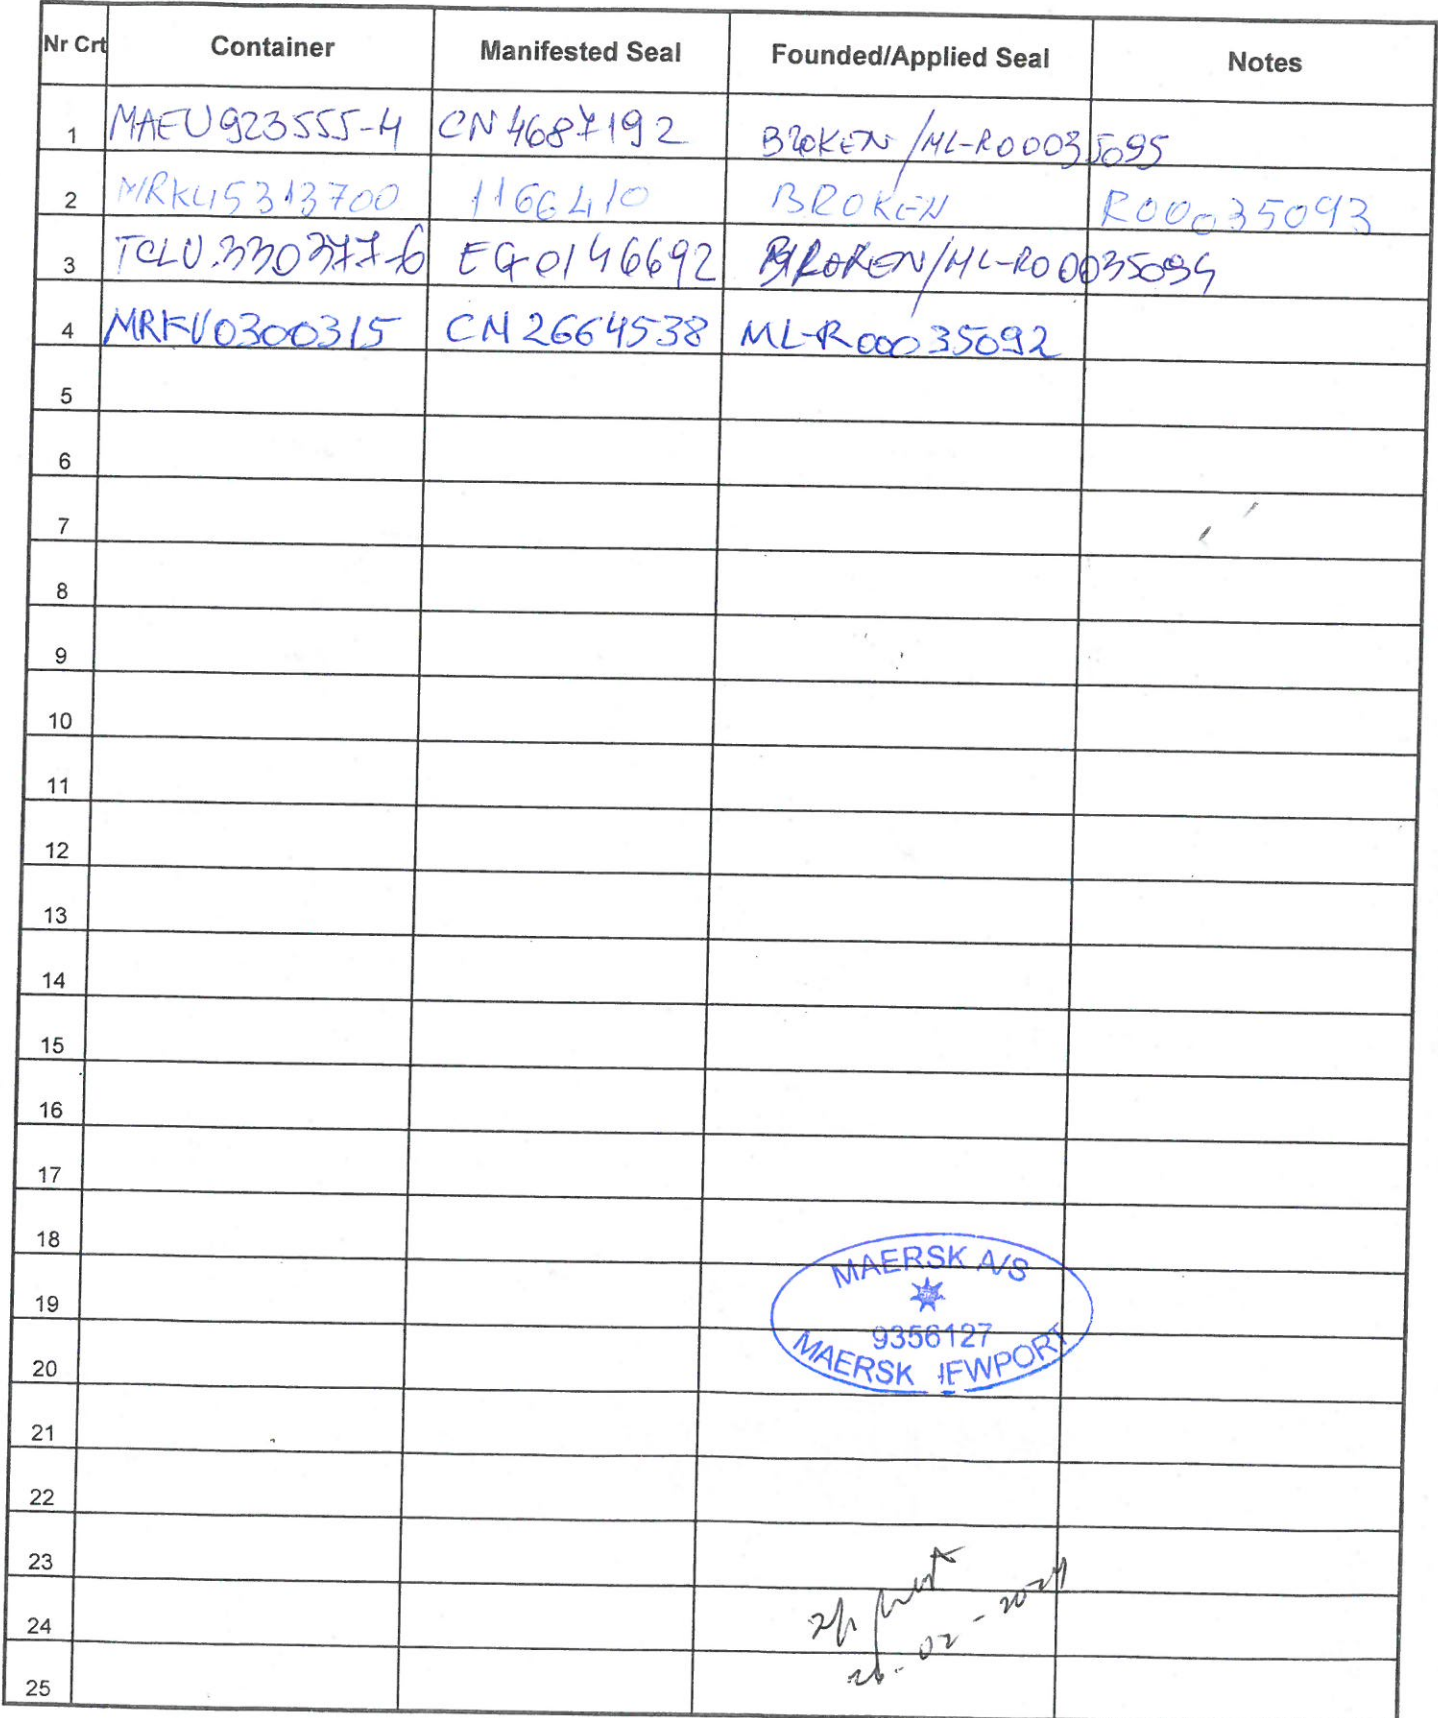 Nr Crt Container Manifested Seal Founded/Applied Seal Notes
1 MAEU923555-4 CN4687192 BROKEN/ML-R00035095
2 MRKU5313700 1166410 BROKEN R00035093
3 TCLU.330377-6 EG0146692 BROKEN/ML-R00035094
4 MRKU0300315 CN2664538 ML-R00035092
5
6
7
8
9
10
11
12
13
14
15
16
17
18
MAERSK A/S
19
9356127
MAERSK NEWPORT
20
21
22
23
24
26-02-2024
25